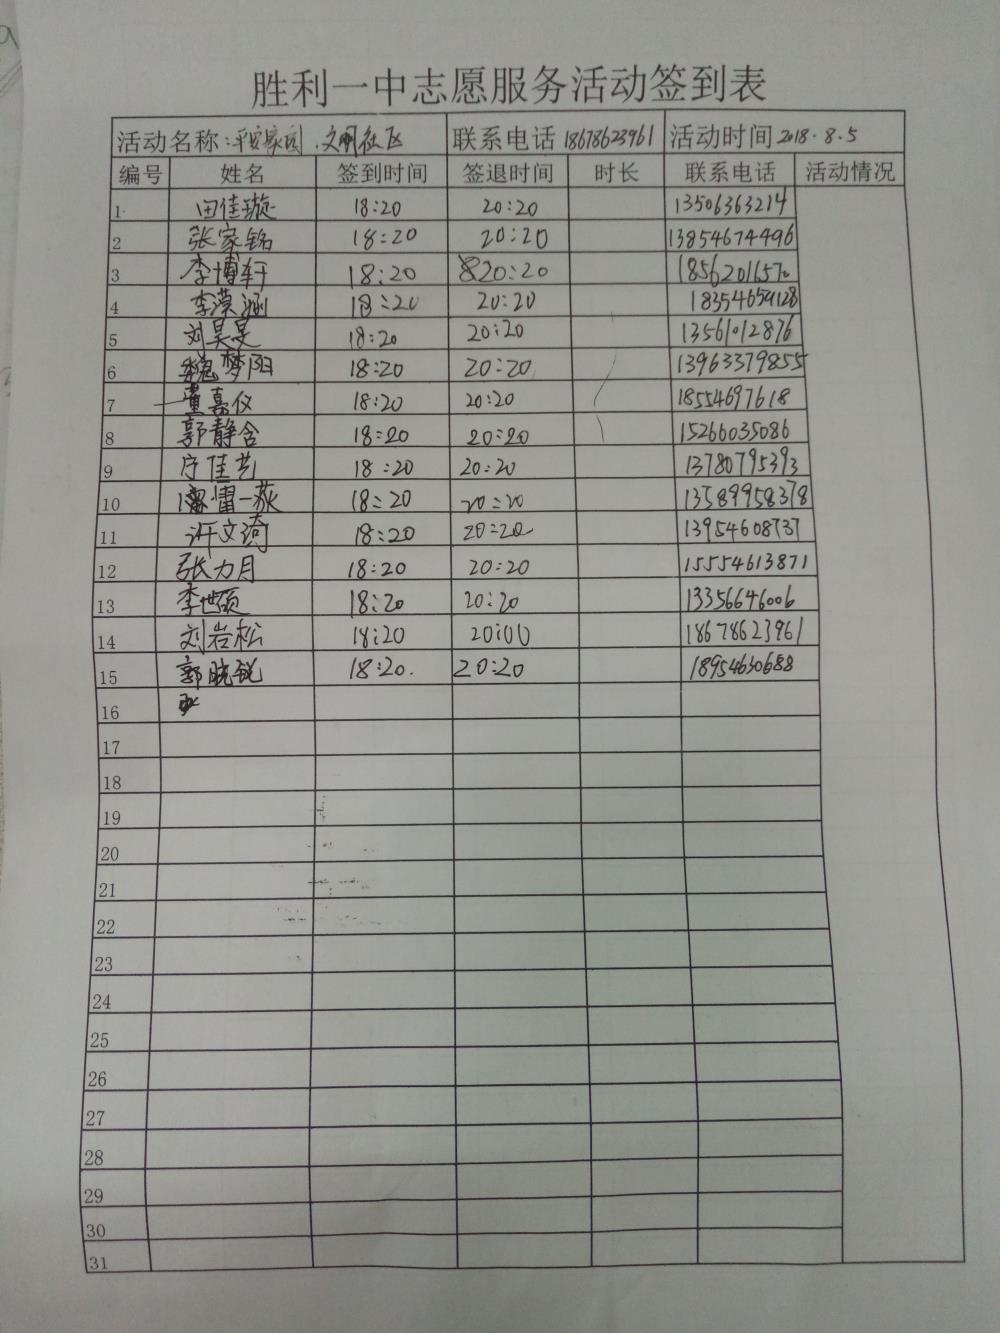 胜利一中志愿服务活动签到表
活动名称:平安家园.文明社区 联系电话 18678623961 活动时间 2018.8.5
编号 姓名 签到时间 签退时间 时长 联系电话 活动情况
1 田佳璇 18:20 20:20 13506363214
2 张家铭 18:20 20:20 13854674496
3 李博轩 18:20 20:20 18562011570
4 李漠涵 18:20 20:20 18354659128
5 刘昊旻 18:20 20:20 13561012876
6 魏梦阳 18:20 20:20 13963379855
7 董嘉仪 18:20 20:20 18554697618
8 郭静含 18:20 20:20 15266035086
9 佳艺 18:20 20:20 13780795393
10 雷一荻 18:20 20:20 13589958378
11 许文琦 18:20 20:20 13954608737
12 张力月 18:20 20:20 15554613871
13 李世硕 18:20 20:20 13356646006
14 刘岩松 18:20 20:00 18678623961
15 郭晓锐 18:20. 20:20 18954630688
16
17
18
19
20
21
22
23
24
25
26
27
28
29
30
31